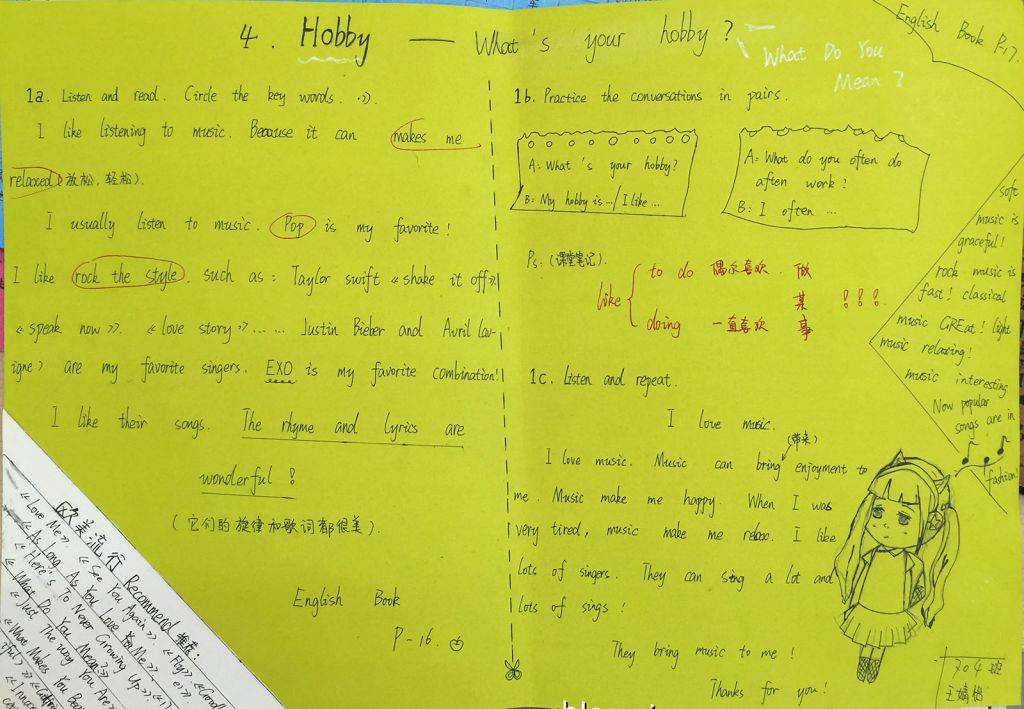 4. Hobby — What's your hobby?
What Do You
Mean?
English Book P-17.
1a. Listen and read. Circle the key words.
I like listening to music. Because it can makes me
relaxed (放松, 轻松).
I usually listen to music. Pop is my favorite!
I like rock the style. such as: Taylor swift 《shake it off》
《speak now》. 《love story》...... Justin Bieber and Avril lav-
igne) are my favorite singers. EXO is my favorite combination!
I like their songs. The rhyme and lyrics are
wonderful!
(它们的旋律和歌词都很美).
English Book
P-16.
欧美流行 Recommend 推荐:
《Love Me》. 《See You Again》. 《Fly》.
《As Long As You Love Me》.
《Here's To Never Growing Up》.
《What Do You Mean?》
《Just The Way You Are》
《What Makes You
1b. Practice the conversations in pairs.
A: What's your hobby?
B: My hobby is.../I like...
A: What do you often do
aften work?
B: I often ...
Ps: (课堂笔记).
like
to do 偶尔喜欢. 做
某 !!!.
doing 一直喜欢 事
1c. Listen and repeat.
I love music.
(带来)
I love music. Music can bring enjoyment to
me. Music make me happy. When I was
very tired, music make me relax. I like
lots of singers. They can sing a lot and
lots of sings!
They bring music to me!
Thanks for you!
soft
music is
graceful!
rock music is
fast! classical
music GREat! light
music relaxing!
music interesting
Now popular
songs are in
fashion!
704班